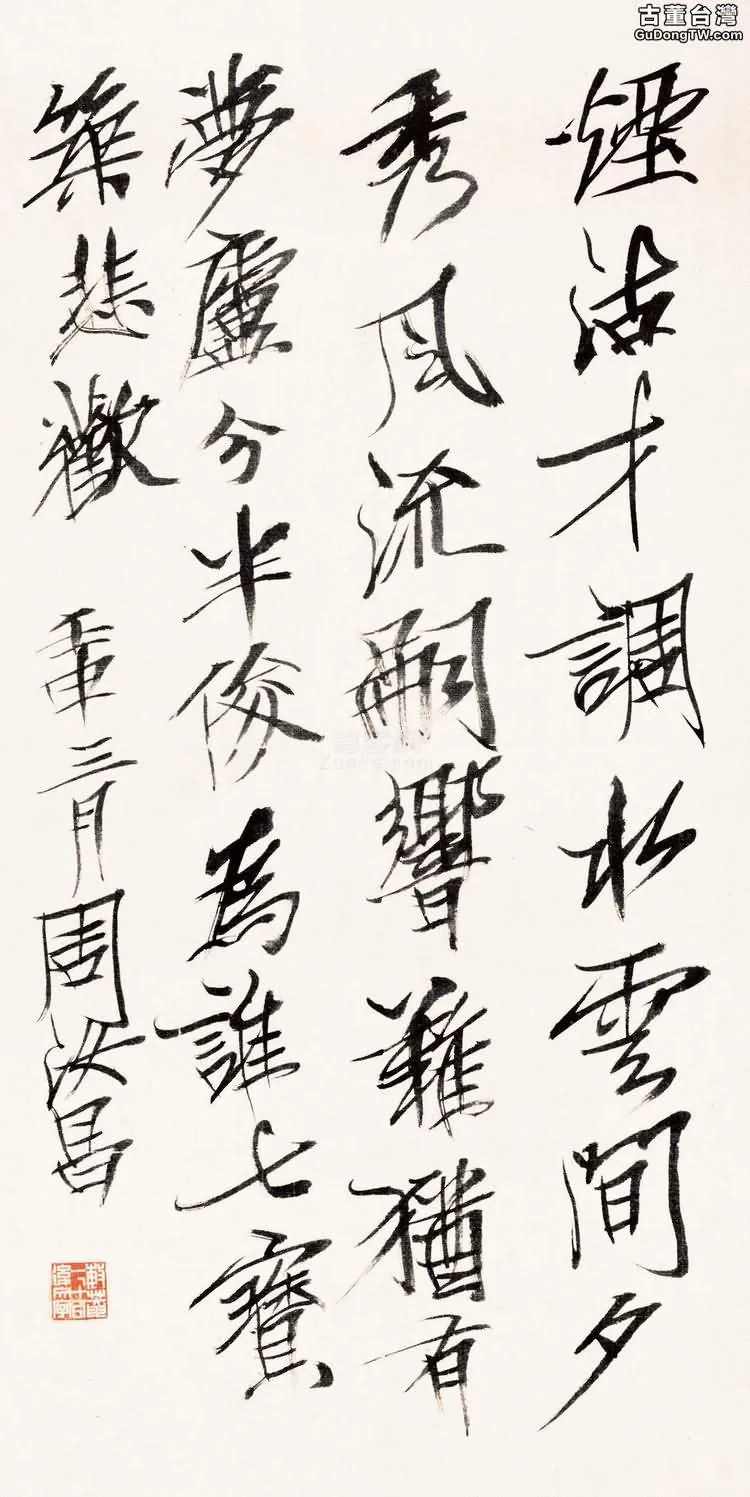 古董台灣
GuDongTW.com
煙沽才調水雲間夕
秀風流嗣響難猶有
夢廬分半俊為誰七寶
築悲歡
三月周汝昌